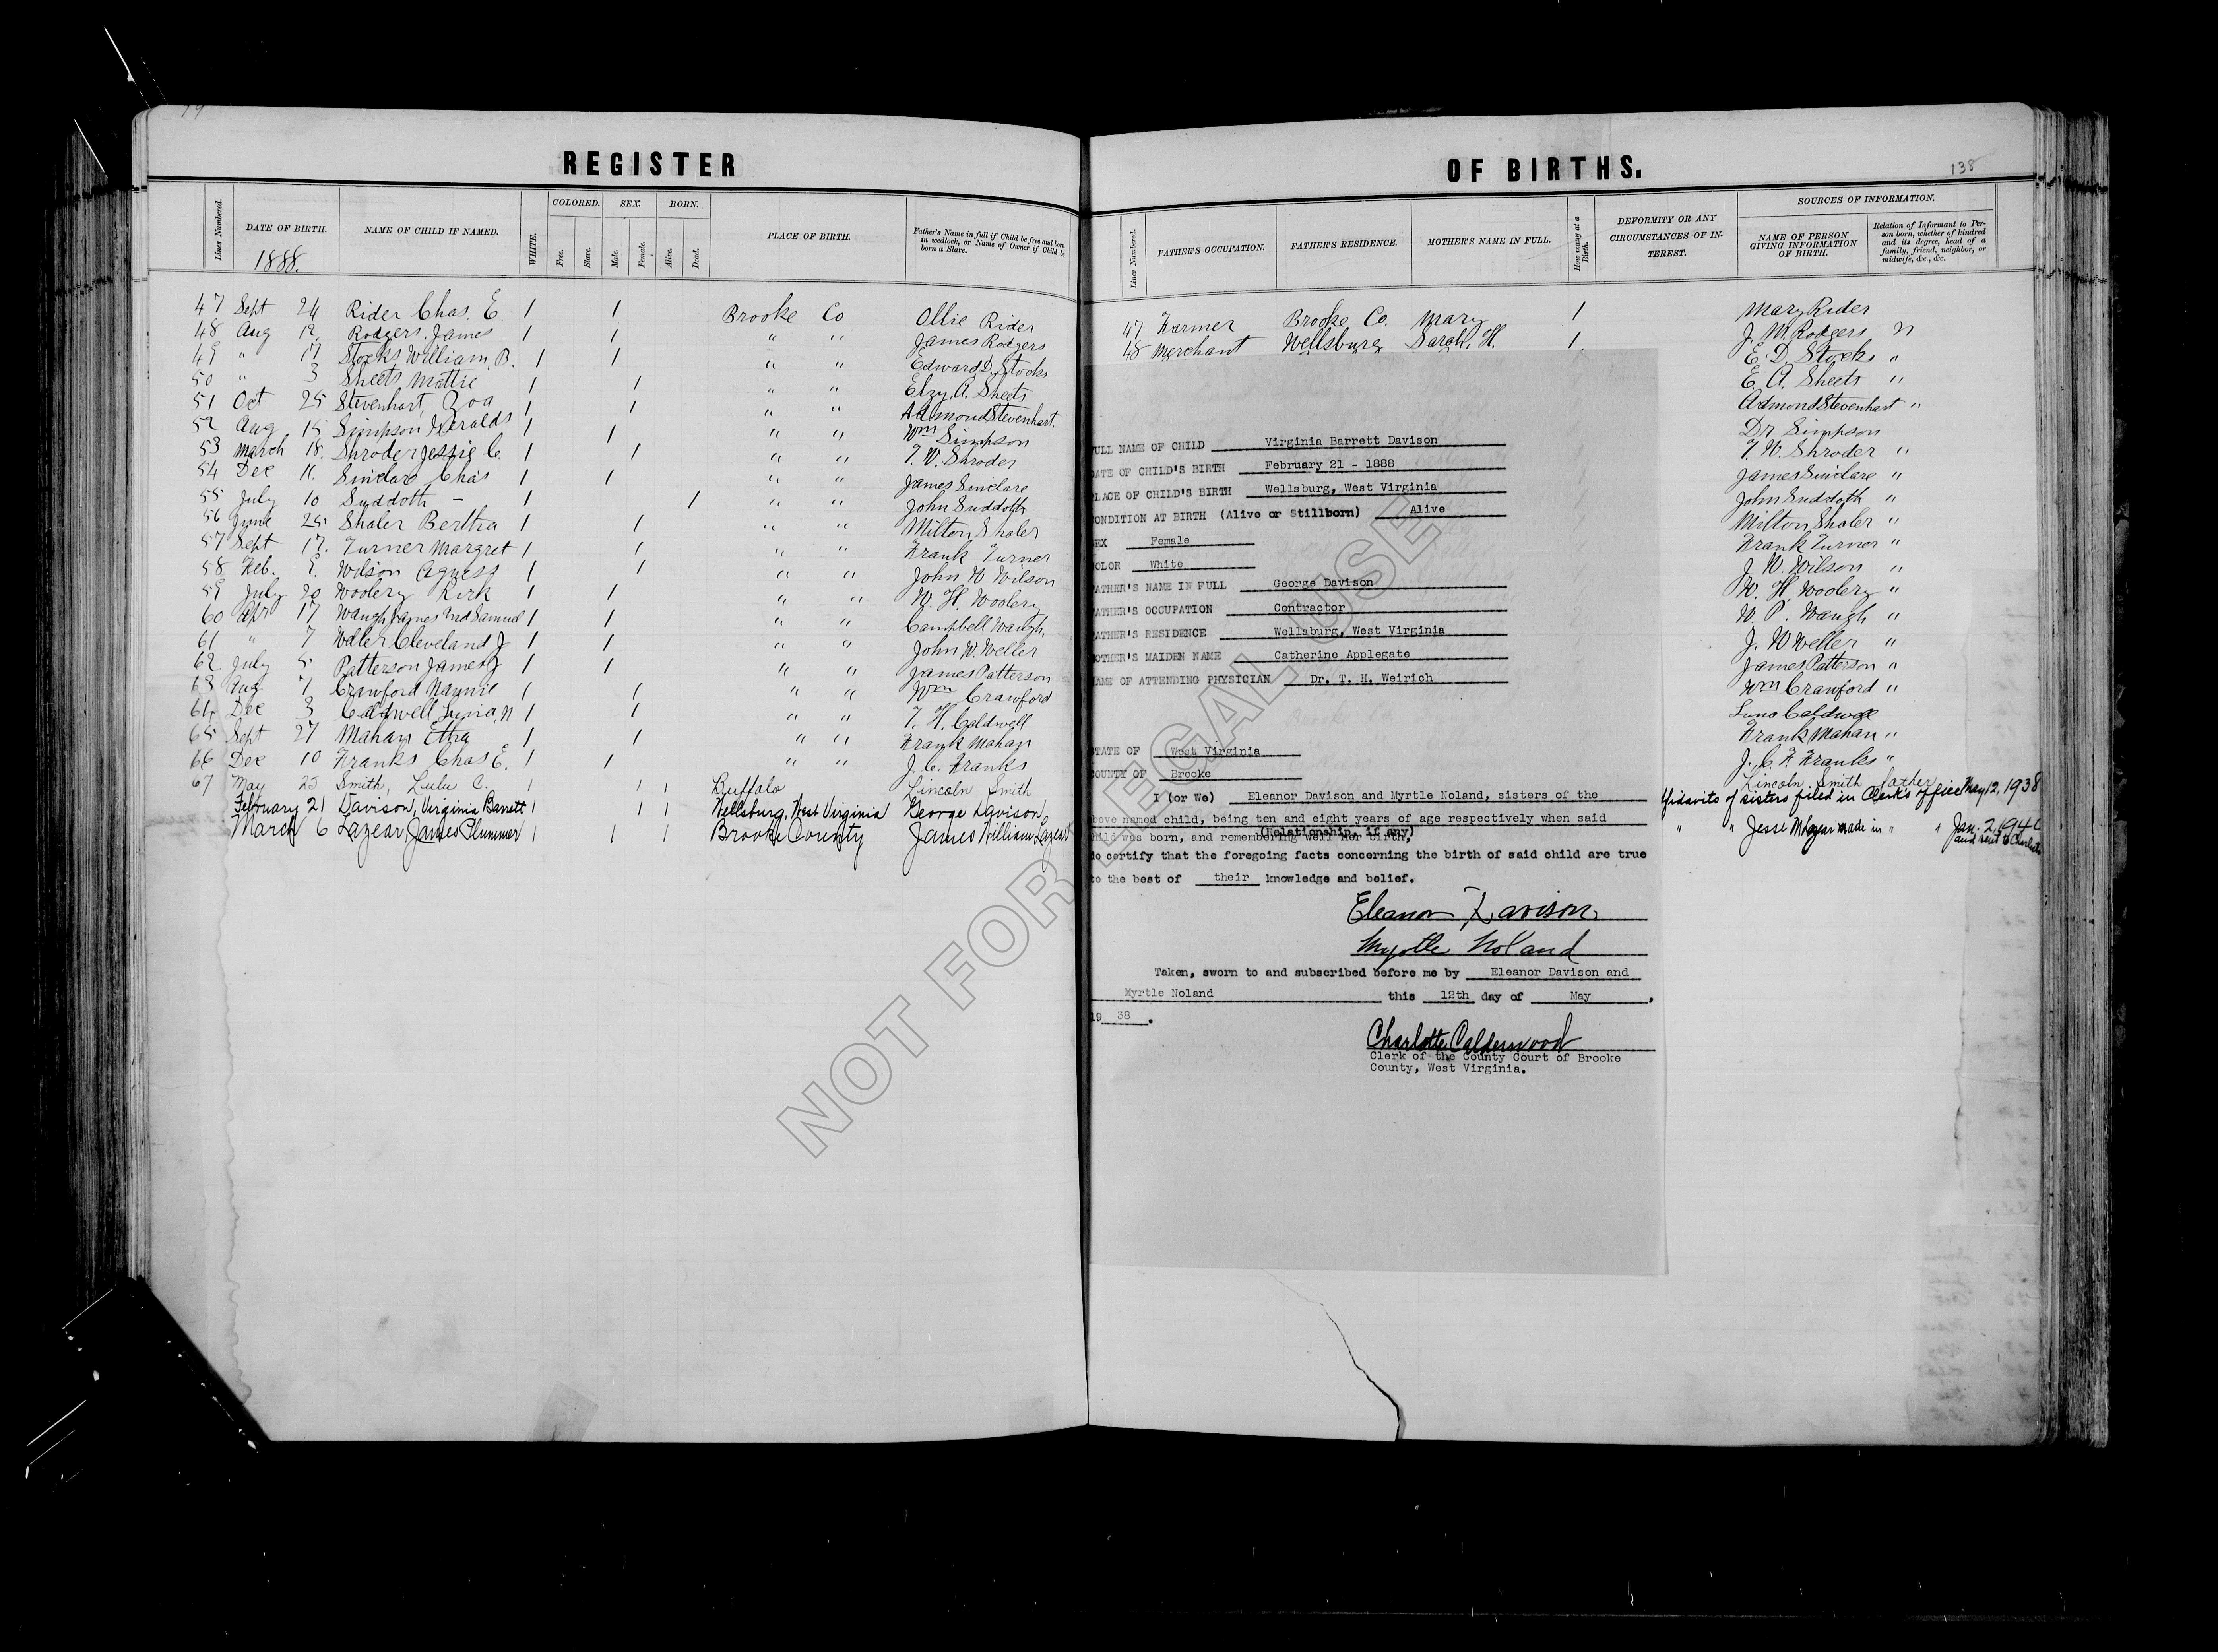 REGISTER
OF BIRTHS.
138
Lines Numbered.
DATE OF BIRTH.
1888.
NAME OF CHILD IF NAMED.
WHITE.
COLORED.
Free.
Slave.
SEX.
Male.
Female.
BORN.
Alive.
Dead.
PLACE OF BIRTH.
Father's Name in full if Child be free and born
in wedlock, or Name of Owner if Child be
born a Slave.
47 Sept 24 Rider Chas. E. 1 1 Brooke Co Ollie Rider
48 Aug 12 Rodgers, James 1 1 " " James Rodgers
49 " 17 Stocks William, B. 1 1 " " Edward D. Stocks
50 " 3 Sheets Mattie 1 1 " " Elzy A. Sheets
51 Oct 25 Stevenhart, Zoa 1 1 " " Admond Stevenhart.
52 Aug 15 Simpson 1 1 " " Wm Simpson
53 March 18. Shroder Jessie C. 1 1 " " T. W. Shroder
54 Dec 11. Sinclare Chas 1 1 " " James Sinclare
55 July 10 Suddoth — 1 1 " " John Suddoth
56 June 25 Shaler Bertha 1 1 " " Milton Shaler
57 Sept 17. Turner Margret 1 1 " " Frank Turner
58 Feb. 9. Wilson Agness 1 1 " " John W Wilson
59 July 20 Woolery Kirk 1 1 " " W. H. Woolery
60 Apr 17 Waugh James Samuel 1 1 " " Campbell Waugh.
61 " 7 Weller Cleveland J 1 1 " " John W. Weller
62. July 5 Patterson James 1 1 " " James Patterson
63 Aug 7 Crawford Nannie 1 1 " " Wm Crawford
64 Dec 3 Caldwell N 1 1 " " T. H. Caldwell
65 Sept 27 Mahan Etha 1 1 " " Frank Mahan
66 Dec 10 Franks Chas E. 1 1 " " J. C. Franks
67 May 25 Smith, Lulu C. 1 1 1 Buffalo Lincoln Smith
February 21 Davison, Virginia Barrett 1 1 1 Wellsburg, West Virginia George Davison
March 6 Lazear, James Plummer 1 1 1 Brooke County James William Lazear
Lines Numbered.
FATHER'S OCCUPATION.
FATHER'S RESIDENCE.
MOTHER'S NAME IN FULL.
How many at a
Birth.
DEFORMITY OR ANY
CIRCUMSTANCES OF IN-
TEREST.
SOURCES OF INFORMATION.
NAME OF PERSON
GIVING INFORMATION
OF BIRTH.
Relation of Informant to Per-
son born, whether of kindred
and its degree, head of a
family, friend, neighbor, or
midwife, &c., &c.
47 Farmer Brooke Co. Mary 1 Mary Rider
48 Merchant Wellsburg Sarah, H. 1. J. M. Rodgers "
E. D. Stocks "
E. A. Sheets "
Admond Stevenhart "
Dr Simpson
T. W. Shroder "
James Sinclare "
John Suddoth "
Milton Shaler "
Frank Turner "
J. W. Wilson "
W. H. Woolery "
W. P. Waugh "
J. W Weller "
James Patterson "
Wm Crawford "
Caldwell
Frank Mahan "
J. C. F. Franks "
Lincoln Smith father
fidavits of sisters filed in Clerk's office May 12, 1938
" " Jesse M Lazear made in " " Jan. 2, 194
and sent to
ULL NAME OF CHILD Virginia Barrett Davison
ATE OF CHILD'S BIRTH February 21 - 1888
LACE OF CHILD'S BIRTH Wellsburg, West Virginia
ONDITION AT BIRTH (Alive or Stillborn) Alive
EX Female
OLOR White
ATHER'S NAME IN FULL George Davison
ATHER'S OCCUPATION Contractor
ATHER'S RESIDENCE Wellsburg, West Virginia
OTHER'S MAIDEN NAME Catherine Applegate
AME OF ATTENDING PHYSICIAN Dr. T. H. Weirich
TATE OF West Virginia
OUNTY OF Brooke
I (or We) Eleanor Davison and Myrtle Noland, sisters of the
bove named child, being ten and eight years of age respectively when said
(Relationship, if any)
hild was born, and remembering well her birth,
do certify that the foregoing facts concerning the birth of said child are true
to the best of their knowledge and belief.
Eleanor Davison
Myrtle Noland
Taken, sworn to and subscribed before me by Eleanor Davison and
Myrtle Noland this 12th day of May,
19 38.
Charlotte Calderwood
Clerk of the County Court of Brooke
County, West Virginia.
NOT FOR LEGAL USE